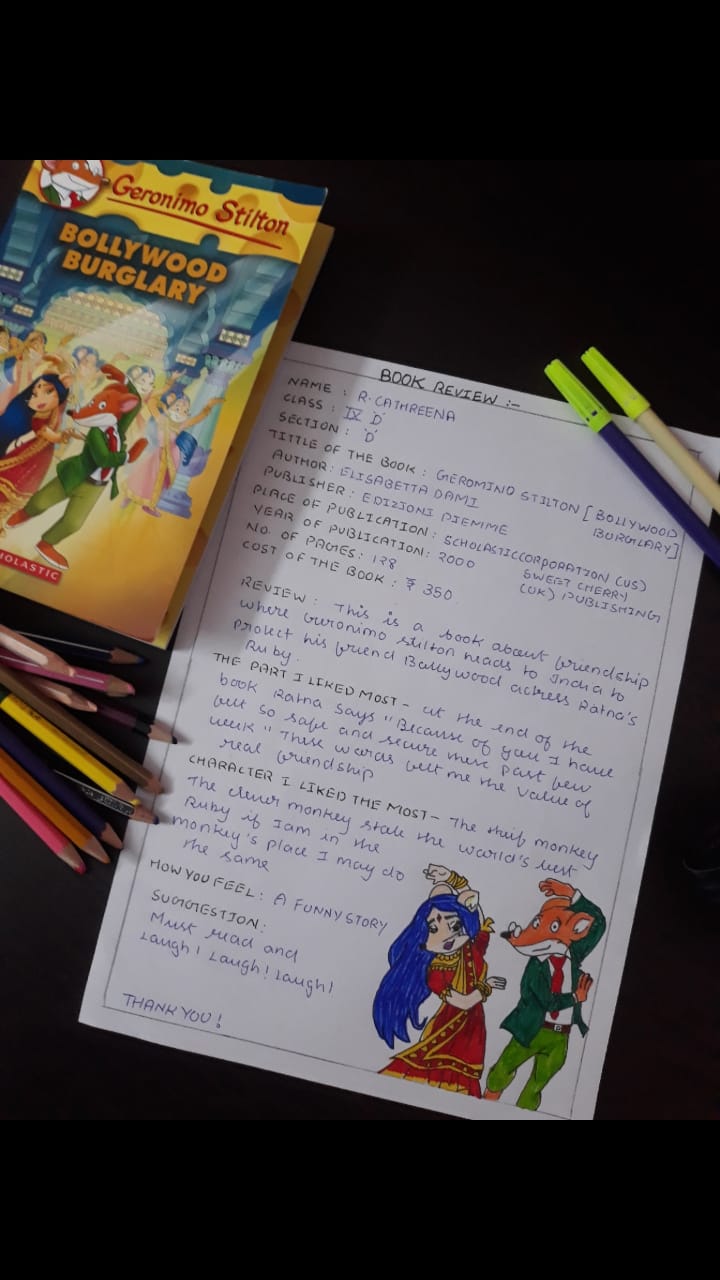 Geronimo Stilton
BOLLYWOOD
BURGLARY
SCHOLASTIC
BOOK REVIEW :-
NAME : R. CATHREENA
CLASS : IV 'D'
SECTION : 'D'
TITTLE OF THE BOOK : GEROMINO STILTON [ BOLLYWOOD
BURGLARY]
AUTHOR : ELISABETTA DAMI
PUBLISHER : EDIZIONI PIEMME
PLACE OF PUBLICATION : SCHOLASTIC CORPORATION (US)
SWEET CHERRY
(UK) PUBLISHING
YEAR OF PUBLICATION: 2000
NO. OF PAGES: 128
COST OF THE BOOK : ₹ 350
REVIEW : This is a book about friendship
where Geronimo stilton heads to India to
protect his friend Bollywood actress Ratna's
Ruby.
THE PART I LIKED MOST - at the end of the
book Ratna says "Because of you I have
felt so safe and secure these past few
week" These words felt me the value of
real friendship
CHARACTER I LIKED THE MOST - The thief monkey
The clever monkey stole the world's best
Ruby if I am in the
monkey's place I may do
the same
HOW YOU FEEL : A FUNNY STORY
SUGGESTION:
Must read and
Laugh! Laugh! Laugh!
THANK YOU!